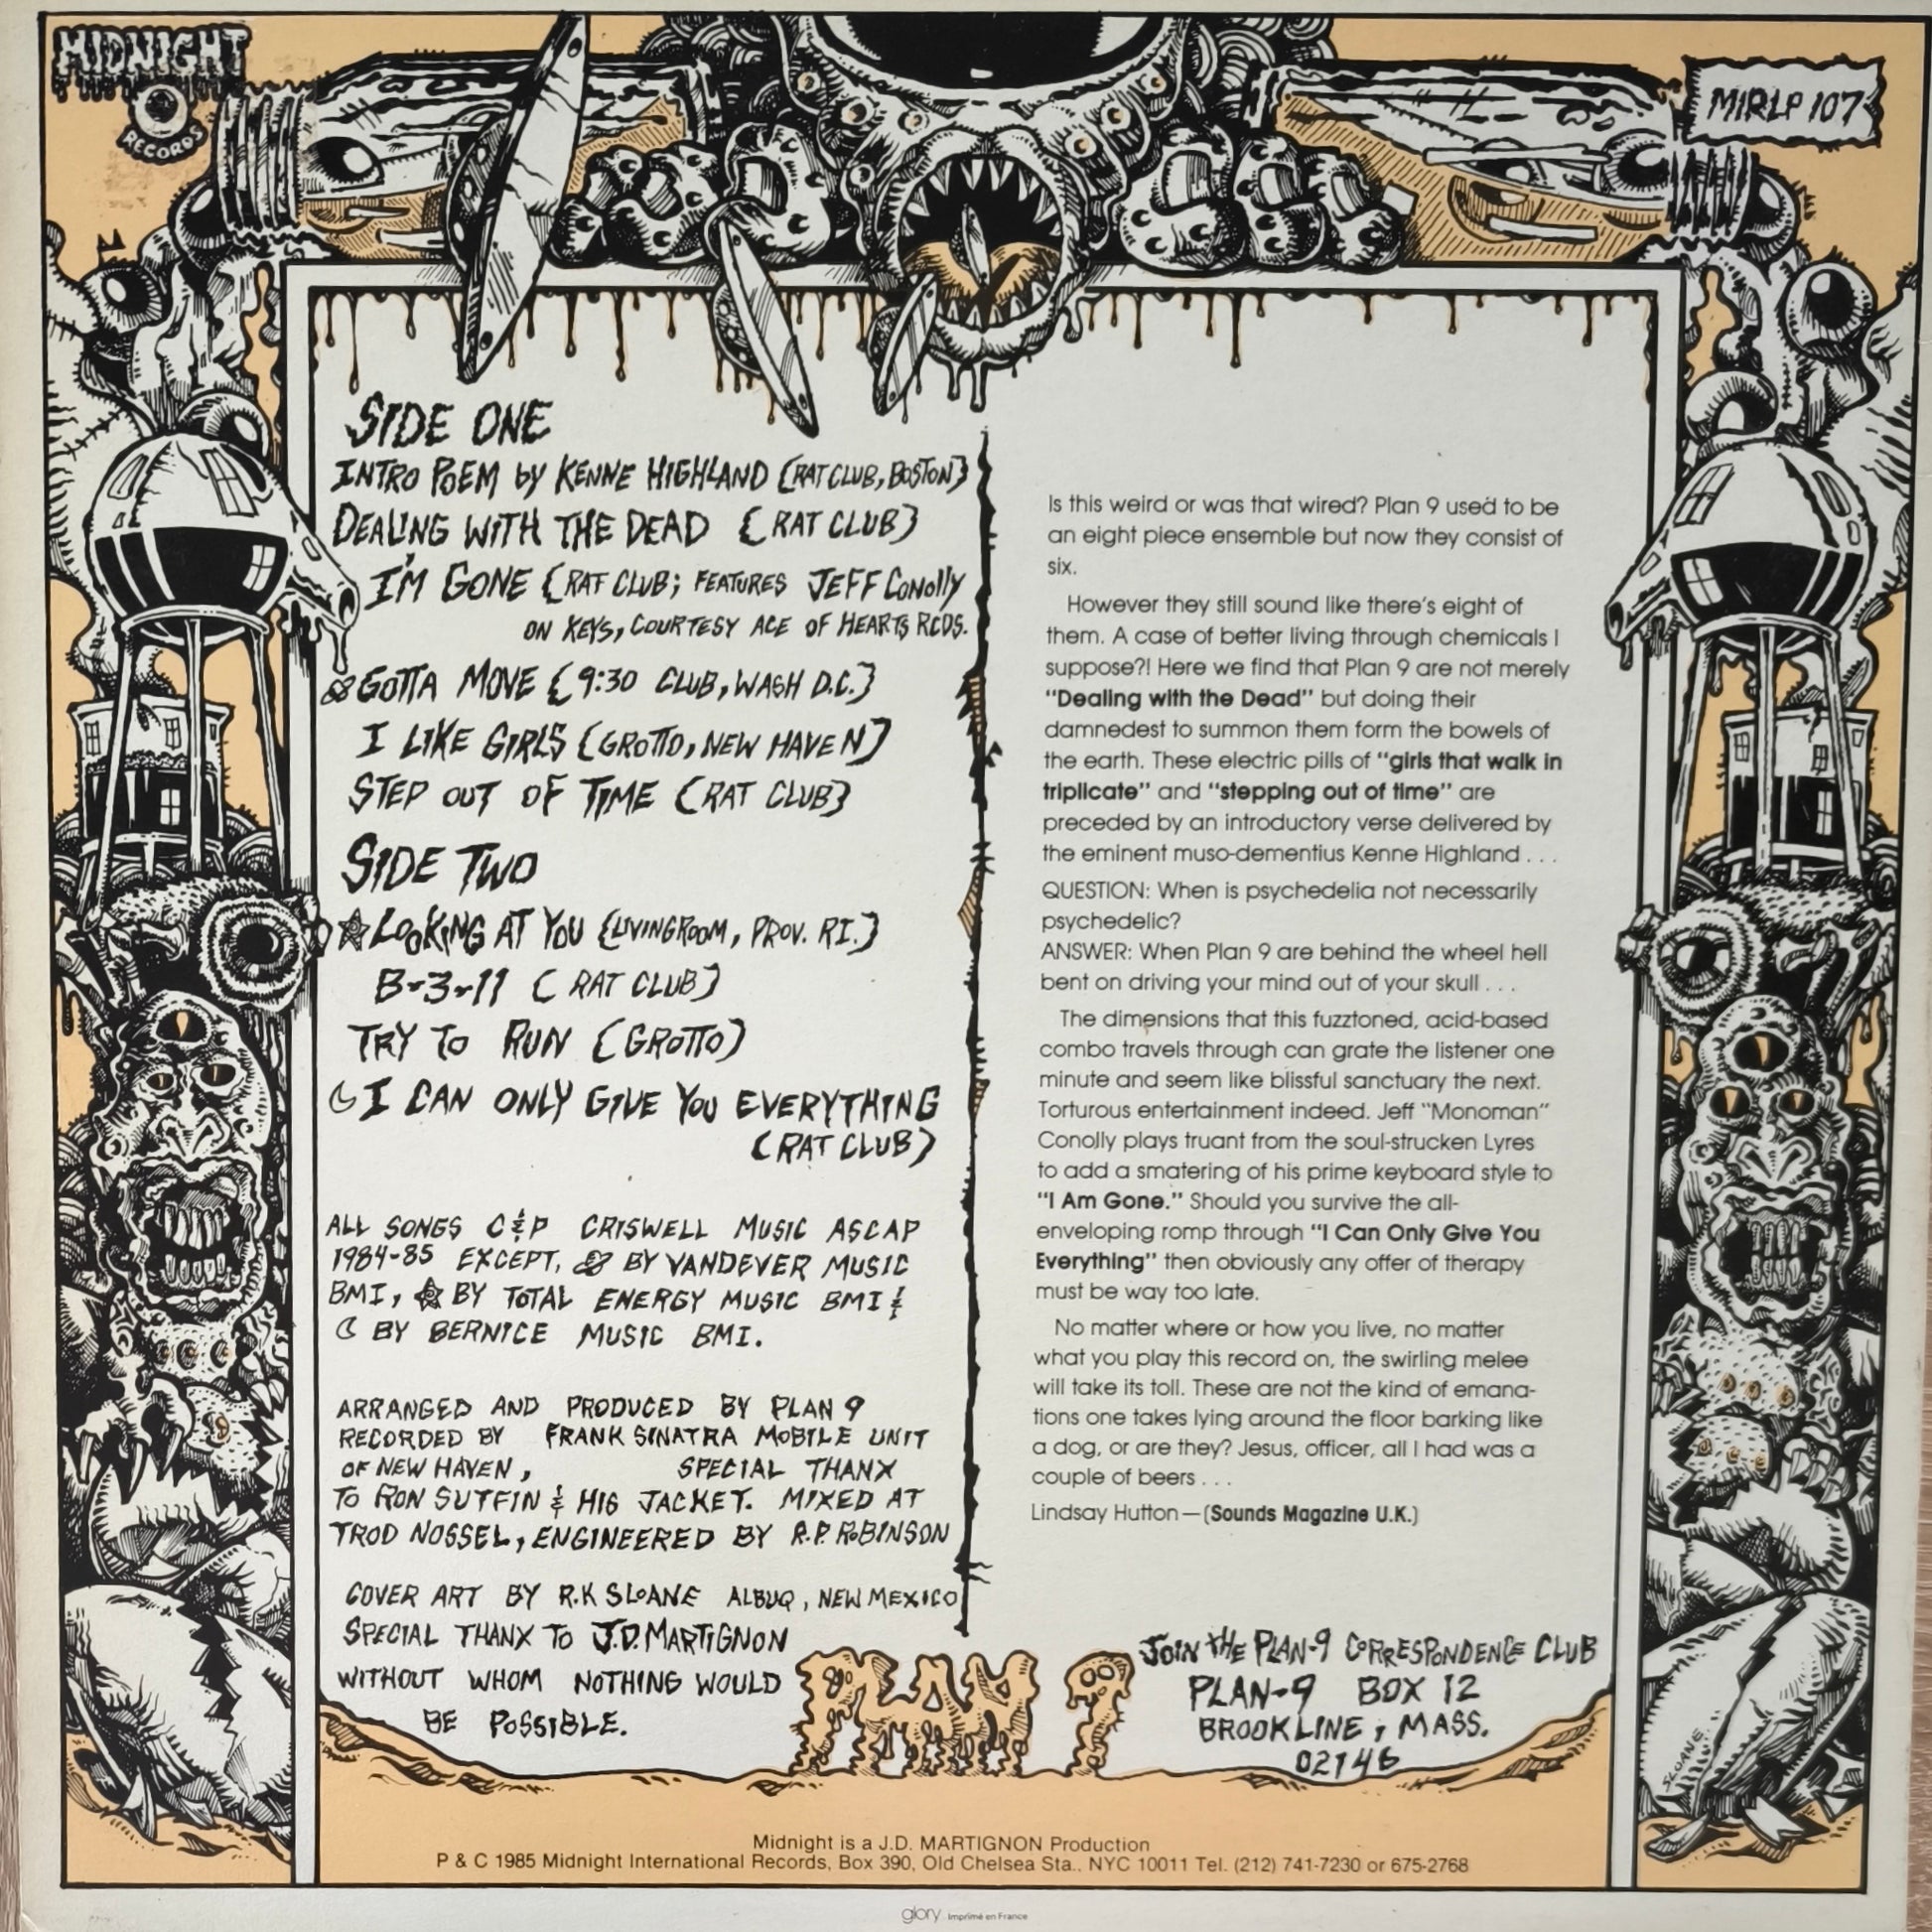 MIDNIGHT
RECORDS
MIRLP 107
SIDE ONE
INTRO POEM by KENNE HIGHLAND (RAT CLUB, BOSTON)
DEALING WITH THE DEAD (RAT CLUB)
I'M GONE (RAT CLUB; FEATURES JEFF CONOlly
ON KEYS, COURTESY ACE OF HEARTS RCDS.
GOTTA MOVE (9:30 CLUB, WASH D.C.)
I LIKE GIRLS (GROTTO, NEW HAVEN)
STEP OUT OF TIME (RAT CLUB)
SIDE TWO
LOOKING AT YOU (LIVINGROOM, PROV. RI.)
B-3-11 (RAT CLUB)
TRY TO RUN (GROTTO)
I CAN ONLY GIVE YOU EVERYTHING
(RAT CLUB)
ALL SONGS C&P CRISWELL MUSIC ASCAP
1984-85 EXCEPT, BY VANDEVER MUSIC
BMI, BY TOTAL ENERGY MUSIC BMI &
BY BERNICE MUSIC BMI.
ARRANGED AND PRODUCED BY PLAN 9
RECORDED BY FRANK SINATRA MOBILE UNIT
OF NEW HAVEN, SPECIAL THANX
TO RON SUTFIN & HIS JACKET. MIXED AT
TROD NOSSEL, ENGINEERED BY R.P. ROBINSON
COVER ART BY R.K SLOANE ALBUQ, NEW MEXICO
SPECIAL THANX TO J.D. MARTIGNON
WITHOUT WHOM NOTHING WOULD
BE POSSIBLE.
Is this weird or was that wired? Plan 9 used to be
an eight piece ensemble but now they consist of
six.
However they still sound like there's eight of
them. A case of better living through chemicals I
suppose?! Here we find that Plan 9 are not merely
"Dealing with the Dead" but doing their
damnedest to summon them form the bowels of
the earth. These electric pills of "girls that walk in
triplicate" and "stepping out of time" are
preceded by an introductory verse delivered by
the eminent muso-dementius Kenne Highland . . .
QUESTION: When is psychedelia not necessarily
psychedelic?
ANSWER: When Plan 9 are behind the wheel hell
bent on driving your mind out of your skull . . .
The dimensions that this fuzztoned, acid-based
combo travels through can grate the listener one
minute and seem like blissful sanctuary the next.
Torturous entertainment indeed. Jeff "Monoman"
Conolly plays truant from the soul-strucken Lyres
to add a smatering of his prime keyboard style to
"I Am Gone." Should you survive the all-
enveloping romp through "I Can Only Give You
Everything" then obviously any offer of therapy
must be way too late.
No matter where or how you live, no matter
what you play this record on, the swirling melee
will take its toll. These are not the kind of emana-
tions one takes lying around the floor barking like
a dog, or are they? Jesus, officer, all I had was a
couple of beers . . .
Lindsay Hutton—(Sounds Magazine U.K.)
PLAN 9
JOIN THE PLAN-9 CORRESPONDENCE CLUB
PLAN-9 BOX 12
BROOKLINE, MASS.
02146
SLOANE
Midnight is a J.D. MARTIGNON Production
P & C 1985 Midnight International Records, Box 390, Old Chelsea Sta.. NYC 10011 Tel. (212) 741-7230 or 675-2768
glory Imprimé en France